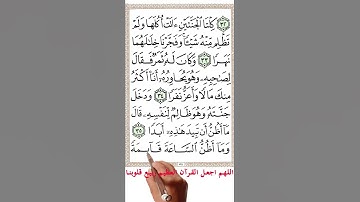 ﴿٣٢﴾ كِلْتَا ٱلْجَنَّتَيْنِ ءَاتَتْ أُكُلَهَا وَلَمْ
تَظْلِم مِّنْهُ شَيْـًٔا وَفَجَّرْنَا خِلَٰلَهُمَا
نَهَرًا ﴿٣٣﴾ وَكَانَ لَهُۥ ثَمَرٌ فَقَالَ
لِصَٰحِبِهِۦ وَهُوَ يُحَاوِرُهُۥٓ أَنَا۠ أَكْثَرُ
مِنكَ مَالًا وَأَعَزُّ نَفَرًا ﴿٣٤﴾ وَدَخَلَ
جَنَّتَهُۥ وَهُوَ ظَالِمٌ لِّنَفْسِهِۦ قَالَ
مَآ أَظُنُّ أَن تَبِيدَ هَٰذِهِۦٓ أَبَدًا ﴿٣٥﴾
وَمَآ أَظُنُّ ٱلسَّاعَةَ قَآئِمَةً
اللهم اجعل القرآن العظيم ربيع قلوبنا